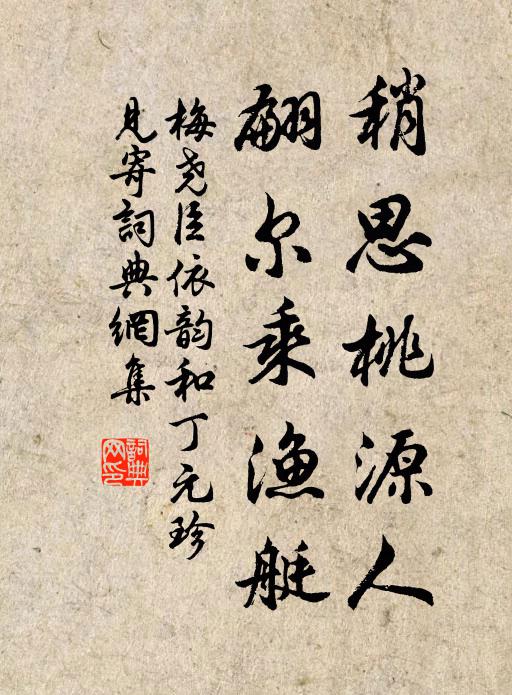 稍思桃源人
翩尔乘渔艇
梅尧臣依韵和丁元珍
见寄词典網集
詞典网印